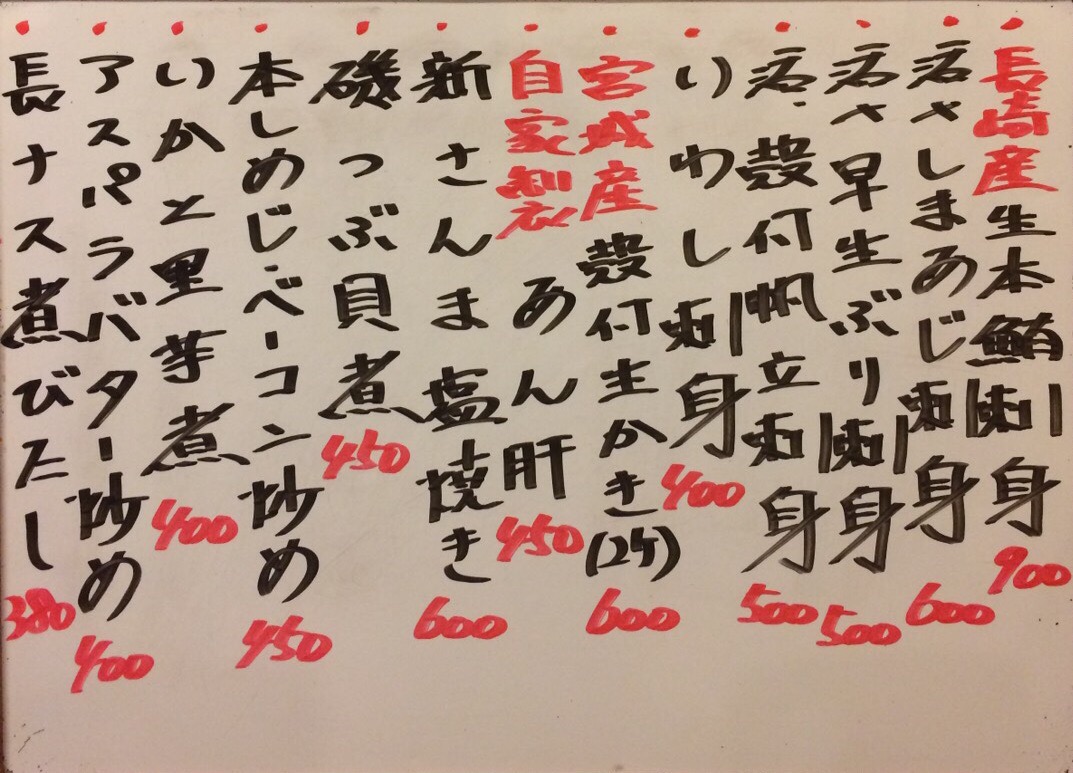 長崎産生本鮪刺身 900
活〆しまあじ刺身 600
活〆早生ぶり刺身 500
活、殻付帆立刺身 500
いわし刺身 400
宮城産殻付生かき(2ケ) 600
自家製あん肝 450
新さんま塩焼き 600
磯つぶ貝煮 450
本しめじ・ベーコン炒め 450
いかと里芋煮 400
アスパラバター炒め 400
長ナス煮びたし 380